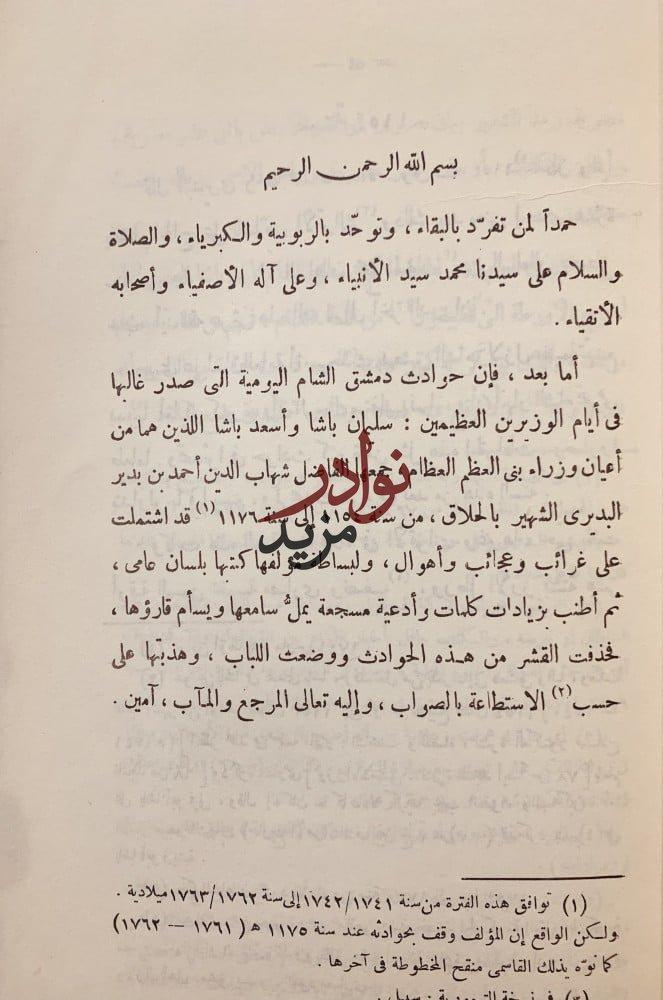 بسم الله الرحمن الرحيم
حمداً لمن تفرّد بالبقاء ، وتوحّد بالربوبية والكبرياء ، والصلاة
والسلام على سيدنا محمد سيد الأنبياء ، وعلى آله الأصفياء وأصحابه
الأتقياء .
أما بعد ، فإن حوادث دمشق الشام اليومية التى صدر غالبها
فى أيام الوزيرين العظيمين : سليمان باشا وأسعد باشا اللذين هما من
أعيان وزراء بنى العظم العظام ، جمعها الفاضل شهاب الدين أحمد بن بدير
البديرى الشهير بالحلاق ، من سنة ١١٥٤ إلى سنة ١١٧٦ (١) قد اشتملت
على غرائب وعجائب وأهوال ، ولبساطة مؤلفها كتبها بلسان عامى ،
ثم أطنب بزيادات كلمات وأدعية مسجعة يملُّ سامعها ويسأم قارؤها ،
فحذفت القشر من هذه الحوادث ووضعت اللباب ، وهذبتها على
حسب (٢) الاستطاعة بالصواب ، وإليه تعالى المرجع والمآب ، آمين .
نوادر
مزيد
(١) توافق هذه الفترة من سنة ١٧٤١/١٧٤٢ إلى سنة ١٧٦٢/١٧٦٣ ميلادية .
ولكن الواقع إن المؤلف وقف بحوادثه عند سنة ١١٧٥ ﻫ ( ١٧٦١ — ١٧٦٢ )
كما نوّه بذلك القاسمى منقح المخطوطة فى آخرها .